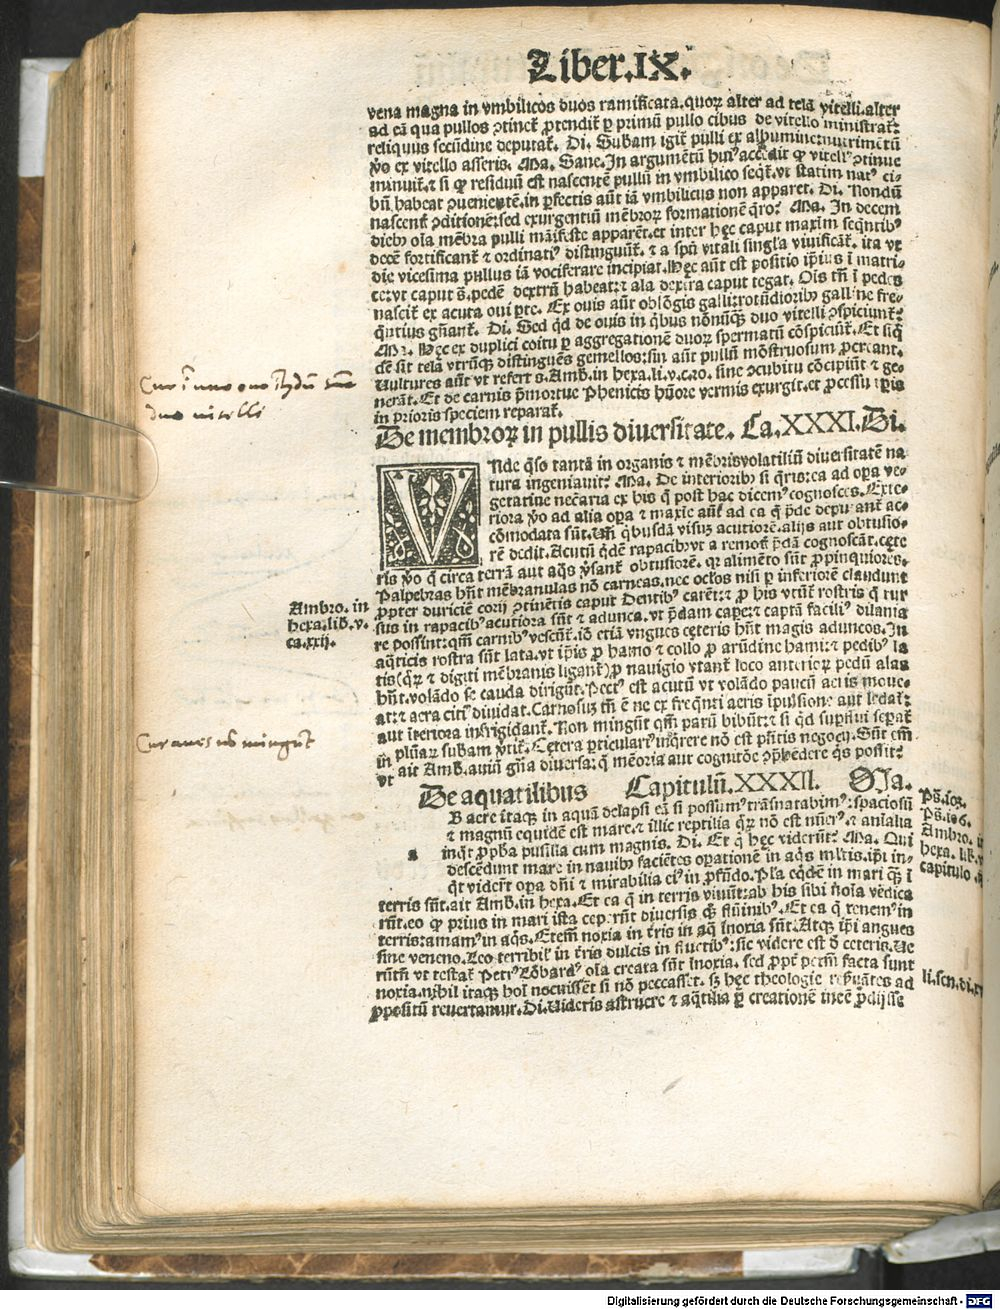 Liber.IX.
vena magna in vmbilicos duos ramificata.quoꝝ alter ad telã vitelli.alter
ad eã qua pullos ꝯtinet̃ ꝓtendit̃ ꝑ primũ pullo cibus de vitello ministrat̃:
reliquus secũdine deputat̃. Di. Subam igit̃ pulli ex albumine:nutrimẽtũ
ṽo ex vitello asseris. Ma. Sane. In argumẽtũ huiꝰ accedit ꝙ vitellꝰ ꝯtinue
minuit̃.⁊ si ꝙ residuũ est nascentẽ pullũ in vmbilico seqt̃.vt statim natꝰ ci⸗
bũ habeat ꝓueniẽtẽ.in ꝑfectis aũt iã vmbilicus non apparet. Di. Nondũ
nascent̃ ꝯditionẽ:sed exurgentiũ mẽbroꝝ formationẽ q̃ro? Ma. In decem
diebꝰ oĩa mẽbra pulli mãifeste apparẽt.et inter hęc caput maxim̃ seqñtibꝰ
decẽ fortificant̃ ⁊ ordinatiꝰ distinguũt̃. ⁊ a spũ vitali singl̃a viuificãt̃. ita vt
die vicesima pullus iã vociferare incipiat.Hęc aũt est positio ip̃ius ĩ matri⸗
ce:vt caput s̃.pedẽ dextrũ habeat:⁊ ala dextra caput tegat. Oĩs tñ ĩ pedes
nascit̃ ex acuta oui ꝑte. Ex ouis aũt oblõgis galli:rotũdioribꝰ gallinę fre⸗
q̃ntius gñant̃. Di. Sed qd̃ de ouis in qbus nõnũq̃ duo vitelli ꝯspiciunt̃:
Ma. Hęc ex duplici coitu ꝑ aggregationẽ duoꝝ spermatũ cõspiciũt̃. Et siq̃
dẽ sit telã vtrũq̃ distinguẽs gemellos:sin aũt pullũ mõstruosum ꝓcreant.
Uultures aũt vt refert s.Amb.in hexa.li.v.c.20. sine ꝯcubitu cõcipiũt ⁊ ge⸗
nerãt. Et de carnis p̃mortue Phenicis hũore vermis exurgit.et ꝓcessu tp̃is
in prioris speciem reparat̃.
De membroꝝ in pullis diuersitate. Ca.XXXI.Di.
Unde q̃so tantã in organis ⁊ mẽbris volatiliũ diuersitatẽ na
tura ingeniauit? Ma. De interioribꝰ si q̃ris:ea ad oꝑa ve⸗
getatiue necãria ex his q̃ post hac dicemꝰ cognosces. Exte⸗
riora ṽo ad alia oꝑa ⁊ maxie aũt ad ea q̃ p̃de deputant̃ ac⸗
cõmodata sũt. Uñ q̃busdã visuꝫ acutiorẽ.alijs aut obtusio⸗
rẽ dedit. Acutũ qdẽ rapacibꝰ:vt a remotꝭ p̃dã cognoscãt.cęte
ris ṽo q̃ circa terrã aut aq̃s ṽsant̃ obtusiorẽ. qꝛ alimẽto sũt ꝓpinquiores.
Palpebras hñt mẽbranulas nõ carneas.nec ocl̃os nisi ꝑ inferiorẽ claudunt
ꝓpter duriciẽ corij ꝯtinẽtis caput Dentibꝰ carẽt:⁊ ꝓ his vtũt̃ rostris q̃ rur
sus in rapacibꝰ acutiora sũt ⁊ adunca.vt p̃dam capeꝛ:⁊ captã faciliꝰ dilania
re possint:qm̃ carnibꝰ vescũt̃.iõ etiã vngues cęteris hñt magis aduncos. In
aq̃ticis rostra sũt lata.vt ip̃is ꝓ hamo ⁊ collo ꝓ arũdine hami:⁊ pedibꝰ la
tis(qꝝ ⁊ digiti mẽbranis ligant̃)ꝓ nauigio vtant̃ loco anterioꝝ pedũ alas
hñt.volãdo se cauda dirigũt. Pectꝰ est acutũ vt volãdo paucũ aeris moue⸗
at:⁊ aera citiꝰ diuidat. Carnosuꝫ tñ ẽ ne ex freq̃nti aeris ĩpulsione aut ledat̃:
aut ĩteriora infrigidant̃. Non mingũt qm̃ parũ bibũt:⁊ si qd suꝑflui seꝑat̃
in plũaꝝ subam ṽtit̃. Cętera ꝑticulariꝰ inq̃rere nõ est p̃ntis negocij. Sũt em̃
vt ait Amb. auiũ gña diuersa:q̃ mẽoria aut cognitõe ꝯp̃hẽdere q̃s possit?
De aquatilibus Capitulũ.XXXII. Ma.
B aere itaq̃ in aquã delapsi eã si possumꝰ trãsnatabimꝰ:spaciosũ
⁊ magnũ equidẽ est mare.⁊ illic reptilia qꝝ nõ est nũerꝰ.⁊ aĩalia
a inq̃t ꝓpha pusilla cum magnis. Di. Et q̃ hęc viderũt? Ma. Qui
descẽdunt mare in nauibꝰ faciẽtes oꝑationẽ in aq̃s ml̃tis.ip̃i in⸗
q̃t viderũt oꝑa dñi ⁊ mirabilia eiꝰ in ꝓfũdo. Pl̃a eq̃dẽ in mari q̃ ĩ
terris sũt.ait Amb.in hexa.Et ea q̃ in terris viuũt:ab his sibi ñoĩa vẽdica
rũt.eo ꝙ prius in mari ista ceperũt diuersis q̃ꝫ fluĩnibꝰ. Et ea q̃ tenemꝰ in
terris:amamꝰ in aq̃s. Etem̃ noxia in tr̃is in aq̃ ĩnoxia sũt. Atq̃ ip̃i angues
sine veneno. Leo terribilꝭ in tr̃is dulcis in fluctibꝰ:sic videre est õ ceteris. Ue
rũtñ vt testat̃ Petrꝰ Lõbardꝰ oĩa creata sũt ĩnoxia. sed ꝓpt̃ pctm̃ facta sunt
noxia.nihil itaq̃ hoĩ nocuissẽt si nõ peccasset. sꝫ hęc theologie reẽuãtes ad
ꝓpositũ reuertamur. Di. Uideris astruere ⁊ aq̃tilia ꝑ creationẽ incẽ ꝓdijsse
Ambro. in
hexa.lib.v.
ca.xxij.
Ps.103.
Ps.106.
Ambro. i
hexa. lib. v
capitulo
li.sen.di.xv
duo vitelli
Cur aues nõ mingũt
Digitalisierung gefördert durch die Deutsche Forschungsgemeinschaft - DFG